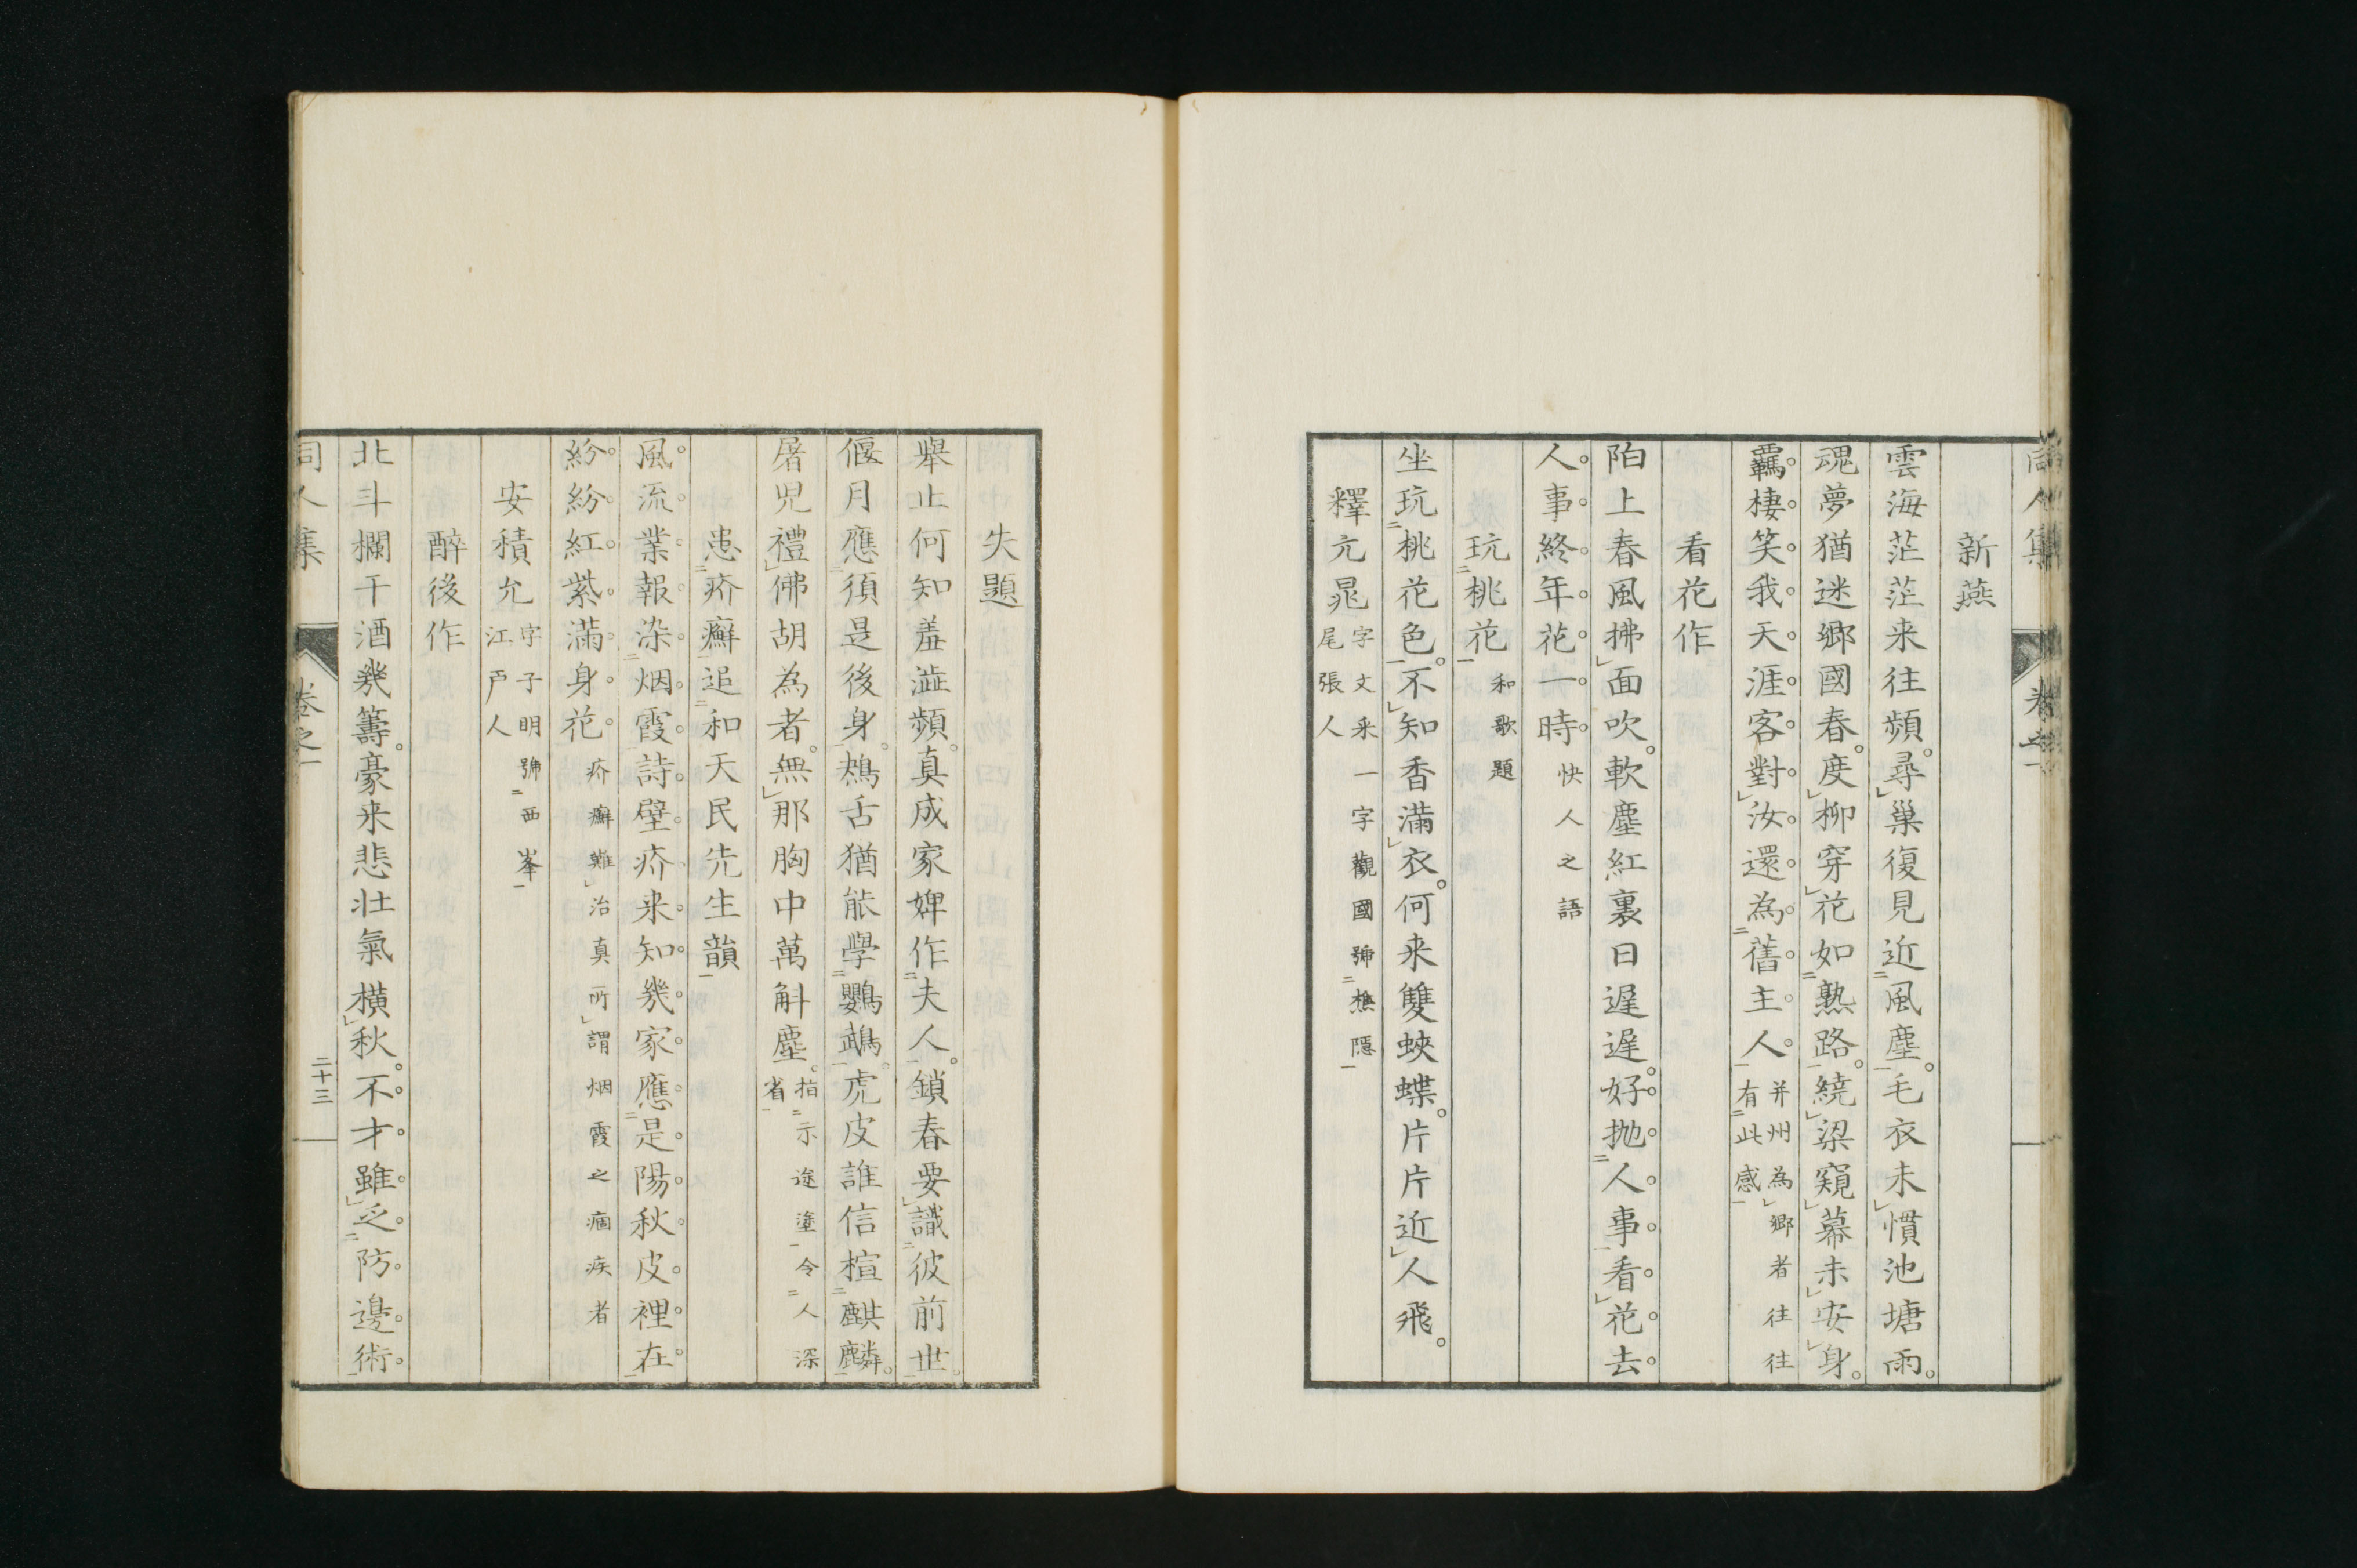 新燕
雲海茫茫来往頻。尋巢復見近風塵。毛衣未慣池塘雨。
魂夢猶迷鄉國春。度柳穿花如熟路。繞梁窺幕未安身。
羈棲笑我天涯客對汝還為舊主人。
并州為鄉者往往
有此感
看花作
陌上春風拂面吹。軟塵紅裏日遲遲。好抛人事看花去
人事終年花一時。快人之語
玩桃花 和歌題
坐玩桃花色。不知香滿衣。何来雙蛺蝶。片片近人飛。
釋亢晁
字文采一字觀國號樵隱
尾張人
失題
舉止何知羞澁頻。真成家婢作夫人。鎖春要識彼前世。
偃月應須是後身。鴂舌猶能學鸚鵡。虎皮誰信楦麒麟。
屠兒禮佛胡為者。無那胸中萬斛塵。
拍示途塗令人深
省
患疥癬追和天民先生韻
風流業報染烟霞詩壁疥来知幾家應是陽秋皮裡在
紛紛紅紫滿身花。疥癬難治真所謂烟霞之痼疾者
安積允
字子明號西峯
江戸人
醉後作
北斗欄干酒幾籌。豪来悲壮氣橫秋。不才雖乏防邊術
同人集
卷之一
二十三